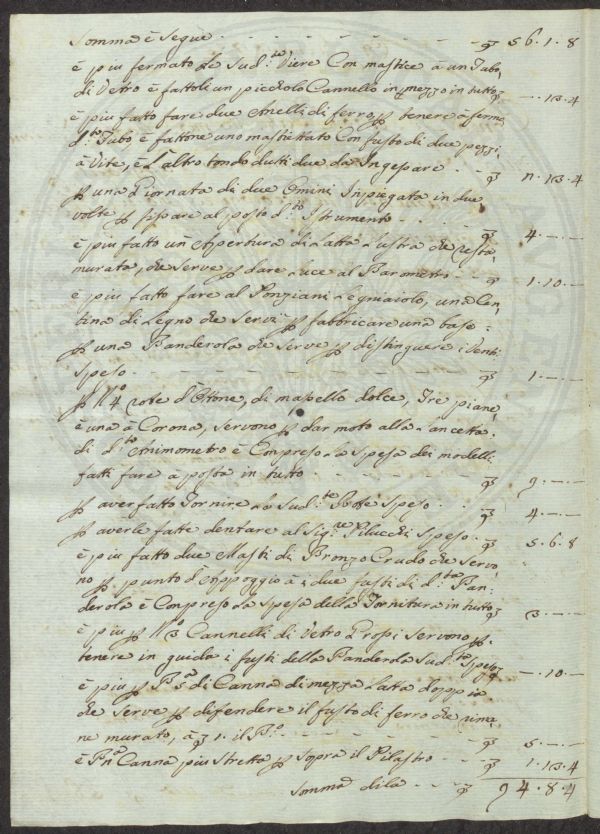 Somma è Segue - - - - - 56.1.8
è piu fermato le Sud.te Viere Con mastice à un Tubo,
di Vetro è fattoli un piccolo Cannello in mezzo in tutto - . 13.4
è piu fatto fare due Anelli di ferro p tenere à fermo
d.to Tubo è fattone uno mastiettato Con fusto di due pezzi
à Vite, è l'altro tondo dutti due da Ingessare - - 11.13.4
p una Giornata di due Omini Inpiegata in due
volte p fissare al posto d.to Istrumento - - - 4.-.-
è piu fatto un'Apertura di Latta Lustra che resta
murata, che Serve p dare Luce al Barometro - - 1.10.-
è piu fatto fare al Ponziani Legniaiolo, una Cen,
tina di Legno che Servi p fabbricare una base.
p una Banderola che Serve p distinguere i Venti
Speso - - - - - 1.-.-
p N.o 4 rote d'Ottone, di mapello dolce, Tre piane,
è una à Corona, Servono p dar moto alla Lancetta.
di d.to Animometro è Conpreso La Spesa dei modelli
fatti fare à posta in tutto - - - - 9.-.-
p aver fatto Tornire le Sud.te Rote Speso - - 4.-.-
p averle fatte dentare al Sig.re Pilucchi Speso - 5.6.8
è piu fatto due Masti di Bronzo Crudo che Servo,
no p punto d'appoggio à i due fusti di d.ta Ban,
derola è Conpreso La Spesa della Tornitura in tutto 3.-.-
è piu p N.o 3 Cannelli di Vetro Grossi Servono p
tenere in guida i fusti della Banderola Sud.ta Speso -.10.-
è piu p B.a 5 di Canna di mezza Latta doppia
che Serve p difendere il fusto di ferro che rima,
ne murato, à 1. il B.o - - - - 5.-.-
è Canna piu Stretta p Sopra il Pilastro - - 1.13.4
Somma dila - - - 94.8.4